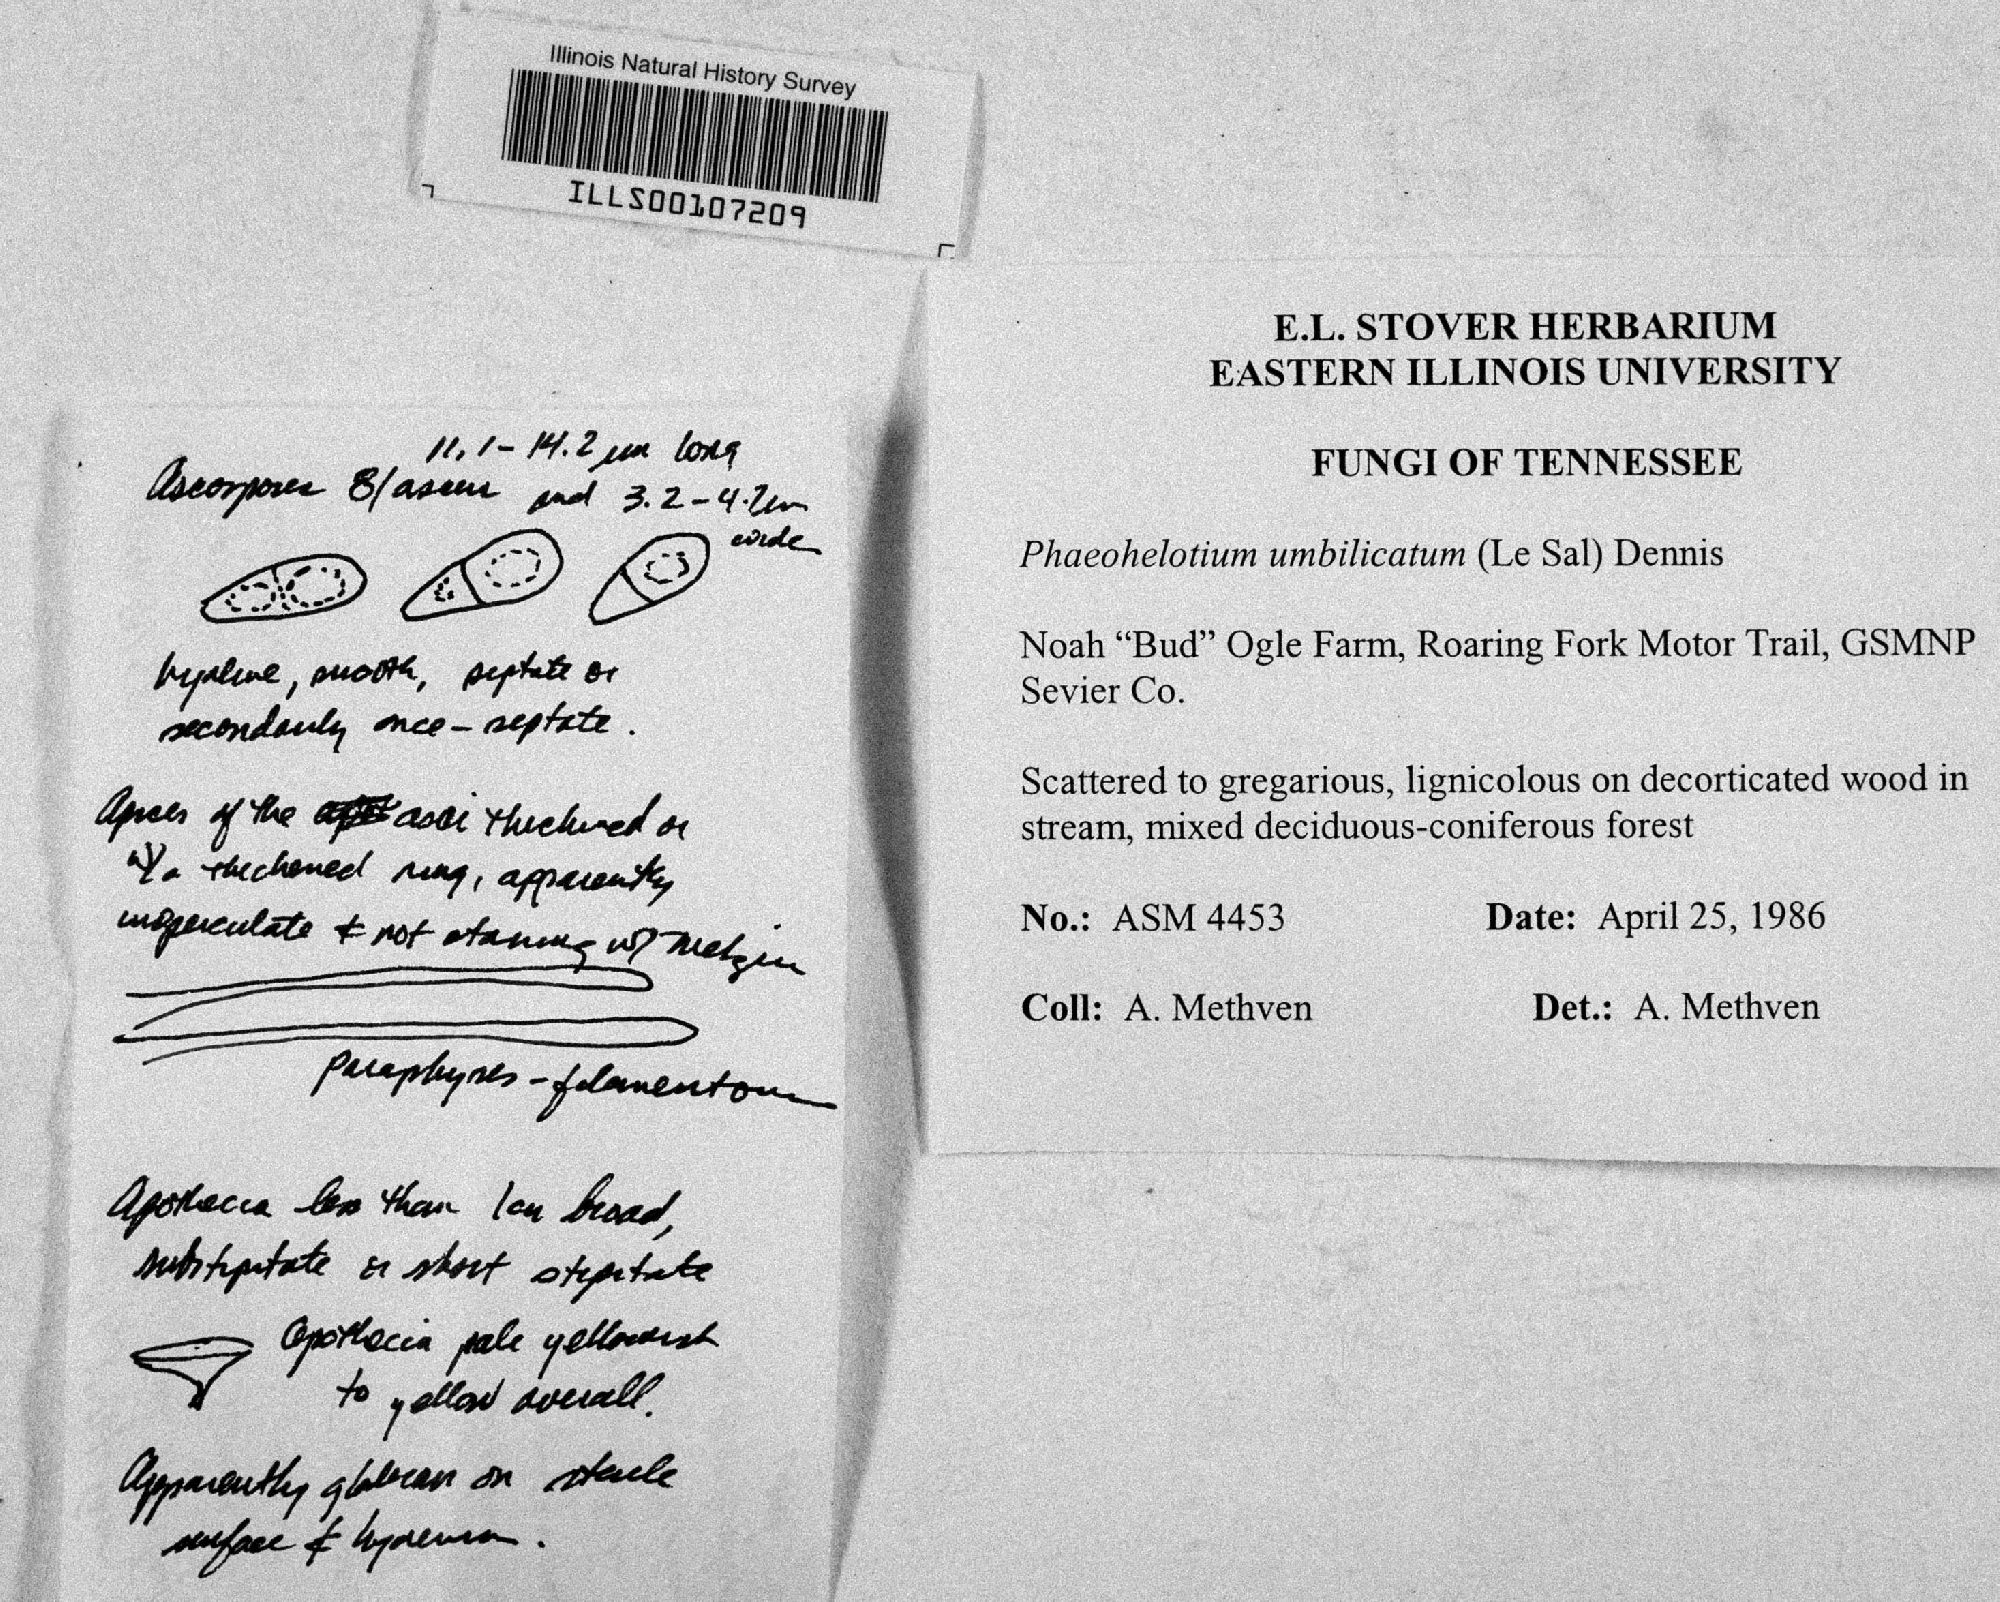 Illinois Natural History Survey
ILLS00107209
11.1-14.2 µm long
Ascospores 8/ascus and 3.2-4.7µm
wide
hyaline, smooth, septate or
secondarily once-septate.
Apices of the asci thickened or
w/ a thickened ring, apparently
inoperculate & not staining w/ Melzin
Paraphyses - filamentous
Apothecia less than 1cm broad,
substipitate or short stipitate
Apothecia pale yellowish
to yellow overall.
Apparently glabrous on sterile
surface & hymenium.
E.L. STOVER HERBARIUM
EASTERN ILLINOIS UNIVERSITY
FUNGI OF TENNESSEE
Phaeohelotium umbilicatum (Le Sal) Dennis
Noah “Bud” Ogle Farm, Roaring Fork Motor Trail, GSMNP
Sevier Co.
Scattered to gregarious, lignicolous on decorticated wood in
stream, mixed deciduous-coniferous forest
No.: ASM 4453 Date: April 25, 1986
Coll: A. Methven Det.: A. Methven